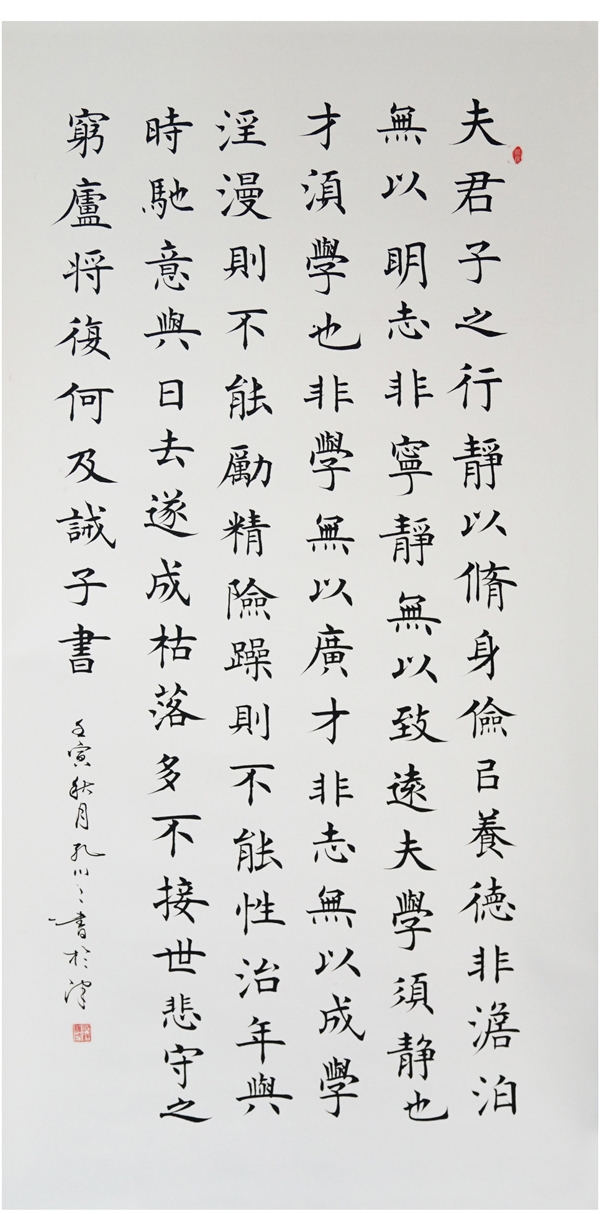 夫君子之行靜以脩身儉㠯養德非澹泊
無以明志非寧靜無以致遠夫學須靜也
才須學也非學無以廣才非志無以成學
淫漫則不能勵精險躁則不能性治年與
時馳意與日去遂成枯落多不接世悲守之
窮廬将復何及誡子書
壬寅秋月孔小之書於